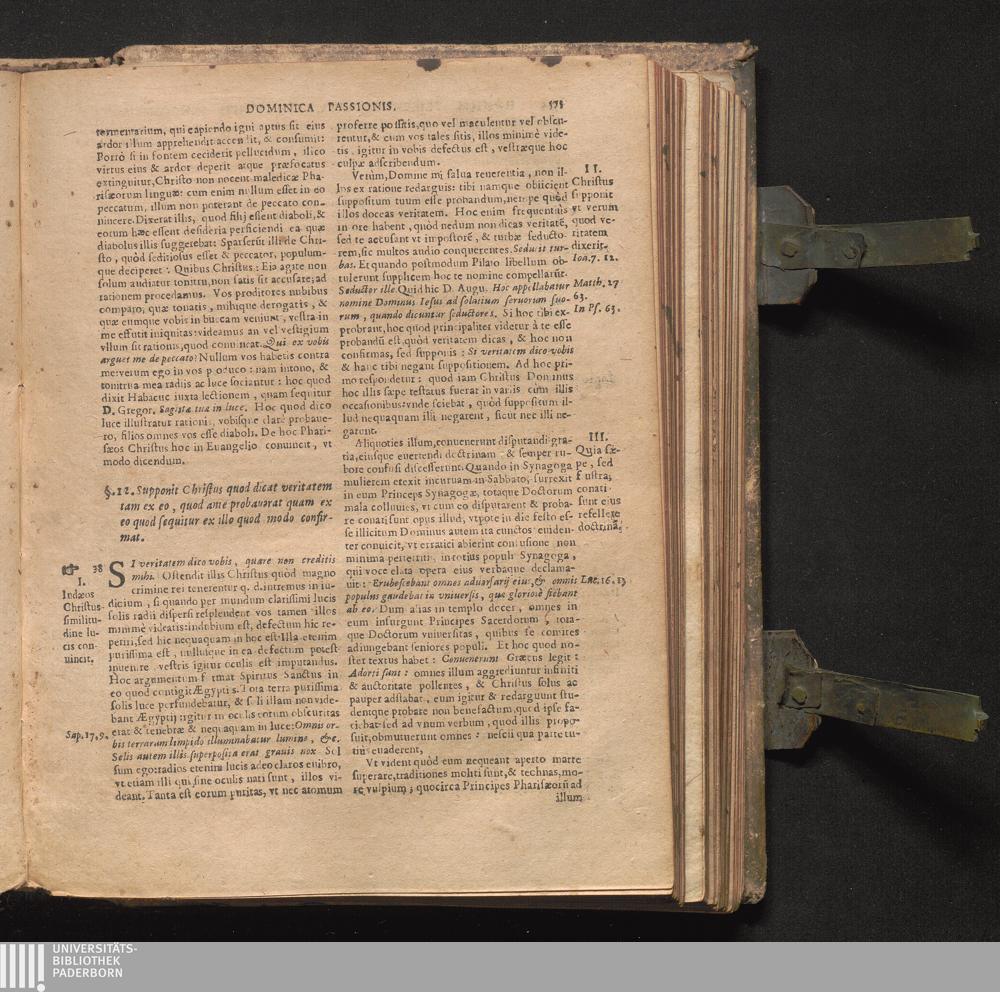 DOMINICA PASSIONIS. 575
tormentarium, qui capiendo igni aptus sit eius
ardor illum apprehendit accendit, & consumit:
Porrò si in fontem ceciderit pellucidum, illico
virtus eius & ardor deperit atque præfocatus
extinguitur, Christo non nocent maledicæ Pha-
risæorum linguæ: cum enim nullum esset in eo
peccatum, illum non poterant de peccato con-
uincere. Dixerat illis, quod filij essent diaboli, &
eorum hæc essent desideria perficiendi ea quæ
diabolus illis suggerebat: Sparserūt illi de Chri-
sto, quòd seditiosus esset & peccator, populum-
que deciperet: Quibus Christus: Eia agite non
solum audiatur tonitru, non satis sit accusare; ad
rationem procedamus. Vos proditores nubibus
comparo, quæ tonatis, mihique derogatis, &
quæ eumque vobis in buccam veniunt, vestra in
me effutit iniquitas: videamus an vel vestigium
vllum sit rationis, quod conuincat. Qui ex vobis
arguet me de peccato? Nullum vos habetis contra
me: verum ego in vos produco: nam intono, &
tonitrua mea radijs ac luce sociantur: hoc quod
dixit Habacuc iuxta lectionem, quam sequitur
D. Gregor. Sagittæ tuæ in luce. Hoc quod dico
luce illustratur rationis, vobisque clarè probaue-
ro, filios omnes vos esse diaboli. De hoc Phari-
sæos Christus hoc in Euangelio conuincit, vt
modo dicendum.
§. 12. Supponit Christus quod dicat veritatem
tam ex eo, quod ante probauerat quam ex
eo quod sequitur ex illo quod modo confir-
mat.
38
I.
Iudæos
Christus
similitu-
dine lu-
cis con-
uincit.
SI veritatem dico vobis, quare non creditis
mihi. Ostendit illis Christus quòd magno
crimine rei tenerentur q. d. intremus in iu-
dicium, si quando per mundum clarissimi lucis
solis radij dispersi resplendent vos tamen illos
minimè videatis: indubium est, defectum hic re-
periri, sed hic nequaquam in hoc est: Illa etenim
purissima est, nullusque in ea defectum potest
inuenire, vestris igitur oculis est imputandus.
Hoc argumentum format Spiritus Sanctus in
eo quod contigit Ægyptijs. Tota terra purissima
solis luce perfundebatur, & soli illam non vide-
bant Ægyptij: igitur in oculis eorum obscuritas
erat & tenebræ & nequaquam in luce: Omnis or-
Sap. 17, 9.
bis terrarum limpido illuminabatur lumine, &c.
Solis autem illis superposita erat grauis nox. Sol
sum ego: radios etenim lucis adeo claros euibro,
vt etiam illi qui sine oculis nati sunt, illos vi-
deant. Tanta est eorum puritas, vt nec atomum
proferre possitis, quo vel maculentur vel obscu-
rentur, & cum vos tales sitis, illos minimè vide-
tis, igitur in vobis defectus est, vestræque hoc
culpæ adscribendum.
Verùm, Domine mi salua reuerentia, non il-
los ex ratione redarguis: tibi namque obiicient
suppositum tuum esse probandum, nempe quòd
illos doceas veritatem. Hoc enim frequentiùs
in ore habent, quòd nedum non dicas veritatē,
sed te accusant vt impostorē, & turbæ seducto-
rem, sic multos audio conquerentes. Seducit tur-
bas. Et quando postmodum Pilato libellum ob-
tulerunt supplicem hoc te nomine compellarūt.
Seductor ille. Quid hic D. Augu. Hoc appellabatur
nomine Dominus Iesus ad solatium seruorum suo-
rum, quando dicuntur seductores. Si hoc tibi ex-
probrant, hoc quod principaliter videtur à te esse
probandū est, quòd veritatem dicas, & hoc non
confirmas, sed supponis: Si veritatem dico vobis
& hanc tibi negant suppositionem. Ad hoc pri-
mo respondetur: quod iam Christus Dominus
hoc illis sæpe testatus fuerat in varijs cum illis
occasionibus: vnde sciebat, quòd suppositum il-
lud nequaquam illi negarent, sicut nec illi ne-
garunt.
II.
Christus
supponit
vt verum
quod ve-
ritatem
dixerit.
Ioā. 7. 12.
Matth. 27
63.
In Ps. 63.
Aliquoties illum, conuenerunt disputandi gra-
tia, eiusque euertendi doctrinam & semper ru-
bore confusi discesserunt. Quando in Synagoga
mulierem etexit incuruam in Sabbato, surrexit
in eum Princeps Synagogæ, totaque Doctorum
mala colluuies, vt cum eo disputarent & proba-
re conati sunt opus illud, vtpote in die festo es-
se illicitum Dominus autem ita cunctos euiden-
ter conuicit, vt erratici abierint confusione non
minima pertentti, in totius populi Synagoga,
qui voce elata opera eius verbaque declama-
uit: Erubescebant omnes aduersarij eius, & omnis
populus gaudebat in vniuersis, quæ gloriosè fiebant
ab eo. Dum alias in templo docer, omnes in
eum insurgunt Principes Sacerdotum, tota-
que Doctorum vniuersitas, quibus se comites
adiungebant seniores populi. Et hoc quod no-
ster textus habet: Conuenerunt Græcus legit:
Adorti sunt: omnes illum aggrediuntur infiniti
& auctoritate pollentes, & Christus solus ac
pauper adstabat, eum igitur & redarguunt stu-
dentque probare non benefactum, quod ipse fa-
ciebat sed ad vnum verbum, quod illis propo-
suit, obmutuerunt omnes: nescii qua parte tu-
tiùs euaderent,
Vt vident quòd eum nequeant aperto marte
superare, traditiones moliti sunt, & technas, mo-
re vulpium; quocirca Principes Pharisæorū ad
illum
III.
Quia sæ-
pe, sed
frustra,
conati
sunt eius
refellere
doctrinā.
Luc. 16. 13
UNIVERSITÄTS-
BIBLIOTHEK
PADERBORN